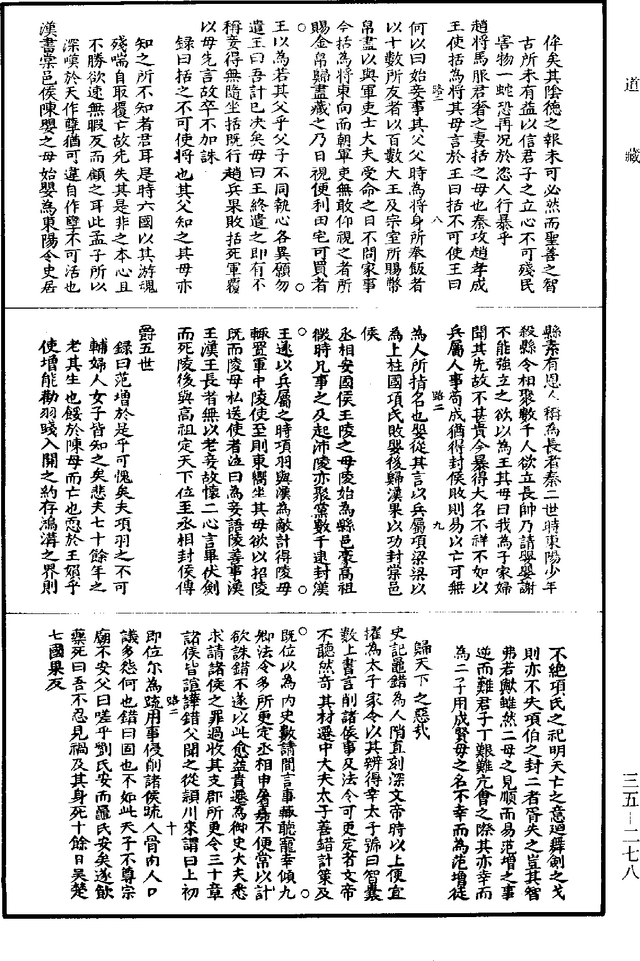 道藏
侔矣其陰德之報未可必然而聖善之智
古所未有益以信君子之立心不可殘民
害物一蛇恐再况於忍人行暴乎
趙將馬服君奢之妻括之母也秦攻趙孝成
王使括為將其母言於王曰括不可使王曰
路二
八
何以曰始妾事其父父時為將身所奉飯者
以十數所友者以百數大王及宗室所賜幣
帛盡以與軍吏士大夫受命之日不問家事
今括為將東向而朝軍吏無敢仰視之者所
賜金帛歸盡藏之乃日視便利田宅可買者
王以為若其父乎父子不同執心各異願勿
遣王曰吾計已決矣母曰王終遣之即有不
稱妾得無隨坐括既行趙兵果敗括死軍覆
以母先言故卒不加誅
錄曰括之不可使將也其父知之其母亦
知之所不知者君耳是時六國以其游魂
殘喘自取覆亡故先失其是非之本心且
不勝欲速無暇反而顧之耳此孟子所以
深嘆於天作孽猶可違自作孽不可活也
漢書棠邑侯陳嬰之母始嬰為東陽令史居
縣素有恩人稱為長者秦二世時東陽少年
殺縣令相聚數千人欲立長帥乃請嬰嬰謝
不能強立之欲以為王其母曰我為子家婦
聞其先故不甚貴今暴得大名不祥不如以
兵屬人事苟成猶得封侯敗則易以亡可無
路二
九
為人所指名也嬰從其言以兵屬項梁梁以
為上柱國項氏敗嬰後歸漢果以功封棠邑
侯
丞相安國侯王陵之母陵始為縣邑豪高祖
微時兄事之及起沛陵亦聚黨數千逮封漢
王遂以兵屬之時項羽與漢為敵計得陵母
輒置軍中陵使至則東嚮坐其母欲以招陵
既而陵母私送使者泣曰為妾語陵善事漢
王漢王長者無以老妾故懷二心言畢伏劍
而死陵後與高祖定天下位至丞相封侯傳
爵五世
錄曰范增於是乎可愧矣夫項羽之不可
輔婦人女子皆知之矣悲夫七十餘年之
老其生也餒於陳母而亡也恧於王媼乎
使增能勸羽踐入關之約存鴻溝之界則
不絕項氏之祀明天亡之意迴舞劍之戈
則亦不失項伯之封二者胥失之豈其智
弗若歟雖然二母之見順而易范增之事
逆而難君子丁艱難亢會之際其亦幸而
為二子用成賢母之名不幸而為范增徒
歸天下之惡哉
史記鼂錯為人陗直刻深文帝時以上便宜
擢為太子家令以其辨得幸太子號曰智囊
數上書言削諸侯事及法令可更定者文帝
不聽然奇其材遷中大夫太子善錯計策及
既位以為內史數請間言事輒聽寵幸傾九
卿法令多所更定丞相申屠嘉不便嘗以計
欲誅錯不遂以此愈益貴遷為御史大夫悉
求請諸侯之罪過收其支郡所更令三十章
諸侯皆諠譁錯父聞之從潁川來謂曰上初
路二
十
即位尔為政用事侵削諸侯疏人骨肉人口
議多怨何也錯曰固也不如此天子不尊宗
廟不安父曰嗟乎劉氏安而鼂氏安矣遂飲
藥死曰吾不忍見禍及其身死十餘日吳楚
七國果反
三五—二七八